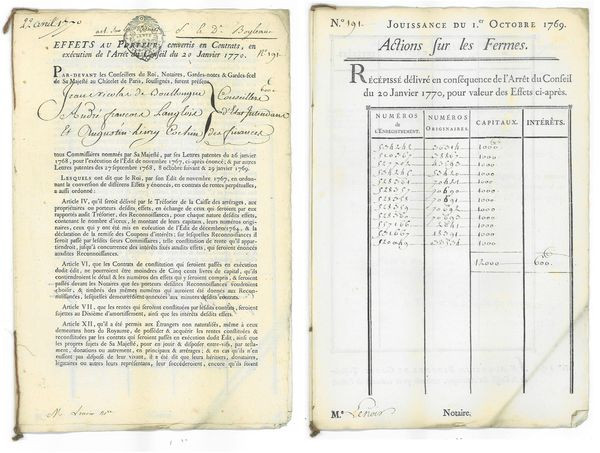 22 avril 1770
act. sur les fermes S. le Dr.
EFFETS AU PORTEUR, convertis en Contrats, en
exécution de l'Arrêt du Conseil du 20 Janvier 1770. N.° 191.
PAR-DEVANT les Conseillers du Roi, Notaires, Gardes-notes & Gardes-scel
de Sa Majesté au Châtelet de Paris, soussignés, furent présens
Jean Nicolas de Boullongne
André François Langlois
Et Augustin henry Cochin
Conseillers
d'Etat Intendans
des finances
600
tous Commissaires nommés par Sa Majesté, par ses Lettres patentes du 26 janvier
1768, pour l'exécution de l'Édit de novembre 1767, ci-après énoncé ; & par autres
Lettres patentes des 27 septembre 1768, 8 octobre suivant & 29 janvier 1769.
LESQUELS ont dit que le Roi, par son Édit de novembre 1767, en ordon-
nant la conversion de différens Effets y énoncés, en contrats de rentes perpétuelles,
a aussi ordonné :
Article IV, qu'il seroit délivré par le Trésorier de la Caisse des arrérages, aux
propriétaires ou porteurs desdits effets, en échange de ceux qui seroient par eux
rapportés audit Trésorier, des Reconnoissances, pour chaque nature desdits effets,
contenant le nombre d'iceux, le montant de leurs capitaux, leurs numéros origi-
naires, ceux qui y ont été mis en exécution de l'Édit de décembre 1764, & la
déclaration de la remise des Coupons d'intérêts ; sur lesquelles Reconnoissances il
seroit passé par lesdits sieurs Commissaires, telle constitution de rente qu'il appar-
tiendroit, jusqu'à concurrence des intérêts fixés auxdits effets, qui seroient énoncés
auxdites Reconnoissances.
Article VI, que les Contrats de constitution qui seroient passés en exécution
dudit édit, ne pourroient être moindres de Cinq cents livres de capital, qu'ils
contiendroient le détail & les numéros des effets qui y seroient compris, & seroient
passés devant les Notaires que les porteurs desdites Reconnoissances voudroient
choisir, & timbrés des mêmes numéros qui auroient été donnés aux Recon-
noissances, lesquelles demeureroient annexées aux minutes desdits contrats.
Article VII, que les rentes qui seroient constituées par lesdits contrats, seroient
sujettes au Dixième d'amortissement, ainsi que les intérêts desdits effets.
Article XII, qu'il a été permis aux Étrangers non naturalisés, même à ceux
demeurans hors du Royaume, de posséder & acquérir les rentes constituées &
reconstituées par les contrats qui seroient passés en exécution dudit Édit, ainsi que
les propres sujets de Sa Majesté, pour en jouir & disposer entre-vifs, par testa-
ment, donations ou autrement, en principaux & arrérages ; & en cas qu'ils n'en
eussent pas disposé de leur vivant, il a été dit que leurs héritiers, donataires,
légataires ou autres leurs représentans, leur succéderoient, encore qu'ils soient
M. Lenoir
N.° 191. JOUISSANCE DU 1.er OCTOBRE 1769.
Actions sur les Fermes.
RÉCÉPISSÉ délivré en conséquence de l'Arrêt du Conseil
du 20 Janvier 1770, pour valeur des Effets ci-après.
NUMÉROS de l'ENREGISTREMENT. NUMÉROS ORIGINAIRES. CAPITAUX. INTÉRÊTS.
1000
1000
1000
1000
1000
1000
1000
1000
1000
1000
12000 600
M.e Lenoir Notaire.